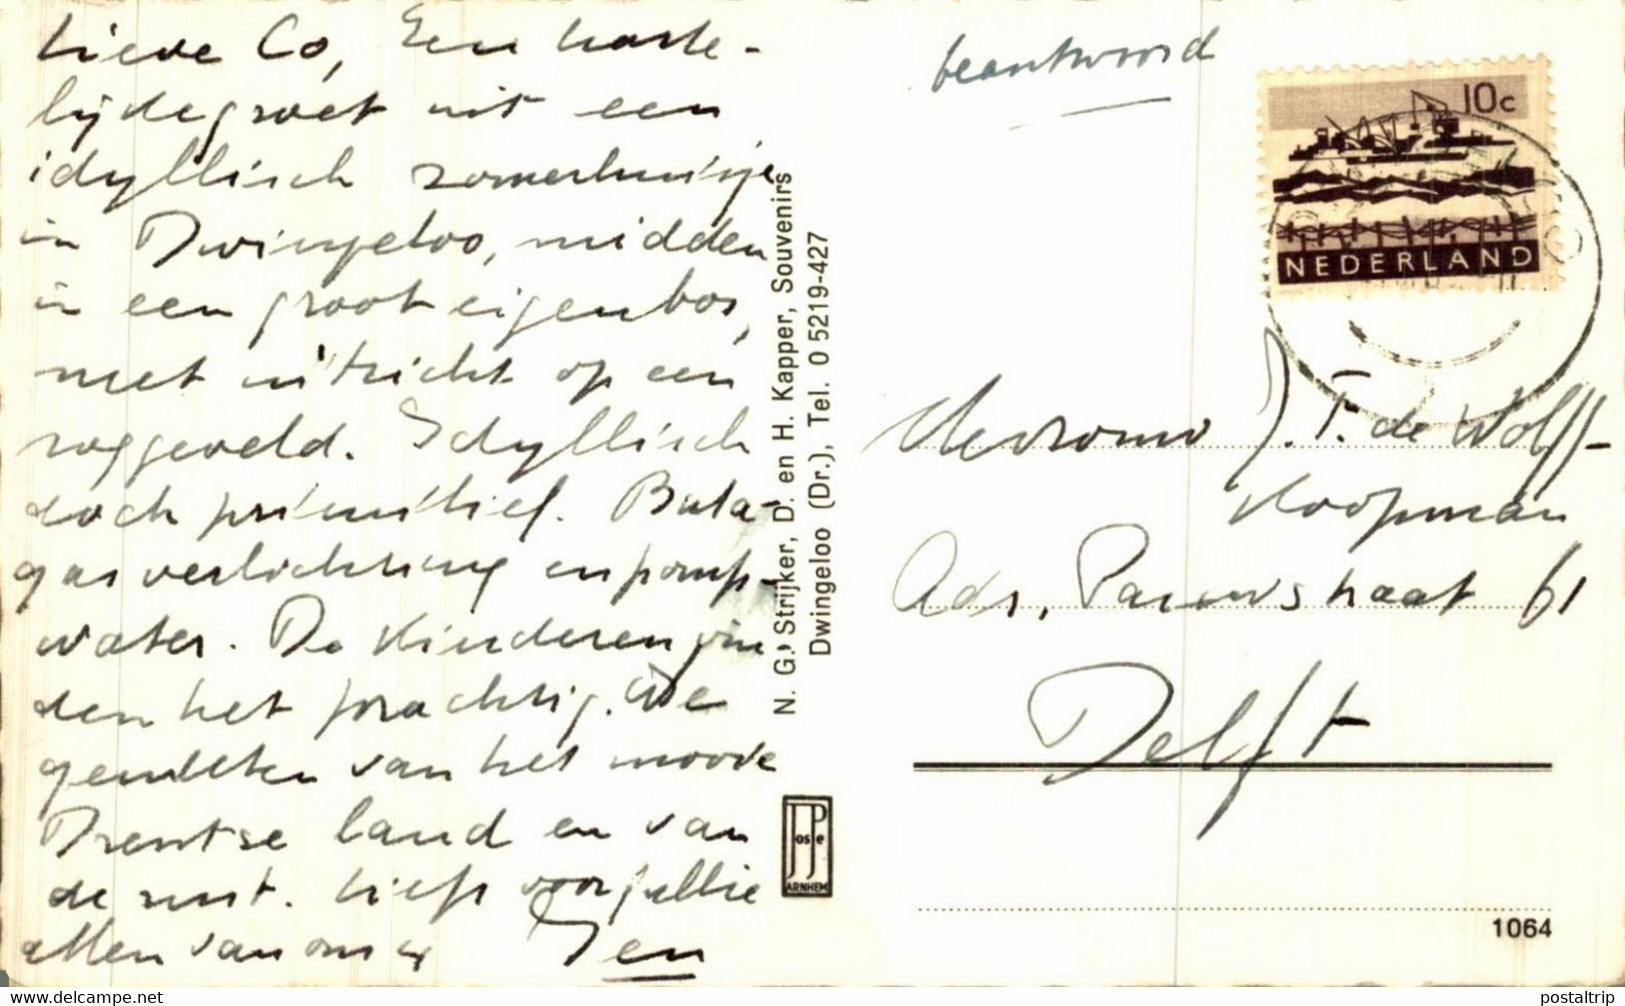 Lieve Co, Een harte-
lijke groet uit een
idyllisch zomerhuisje
in Dwingeloo, midden
in een groot eigen bos,
met uitzicht op een
roggeveld. Idyllisch
doch primitief. Buta-
gasverlichting en pomp-
water. De kinderen vin
den het prachtig. We
genieten van het mooie
Drentse land en van
de rust. Liefs voor jullie
allen van ons 4 Jen
N. G. Strijker, D. en H. Kapper, Souvenirs
Dwingeloo (Dr.), Tel. 0 5219-427
JosPe
ARNHEM
beantwoord
10c
NEDERLAND
Mevrouw J. F. de Wolff-
Koopman
Adr. Pauwstraat 61
Delft
1064
www.delcampe.net
postaltrip